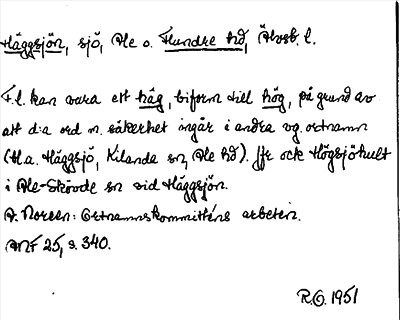 Häggsjön, sjö, Ale o. Flundre hd, Älvsb. l.
F.l. kan vara ett häg, biform till hög, på grund av
att d:a ord m. säkerhet ingår i andra vg. ortnamn
(bl.a. Häggsjö, Kilanda sn, Ale hd). Jfr ock Högsjöhult
i Ale-Skövde sn vid Häggsjön.
A. Noreen: Ortnamnskommitténs arbeten.
ANF 25, s. 340.
R.O. 1951